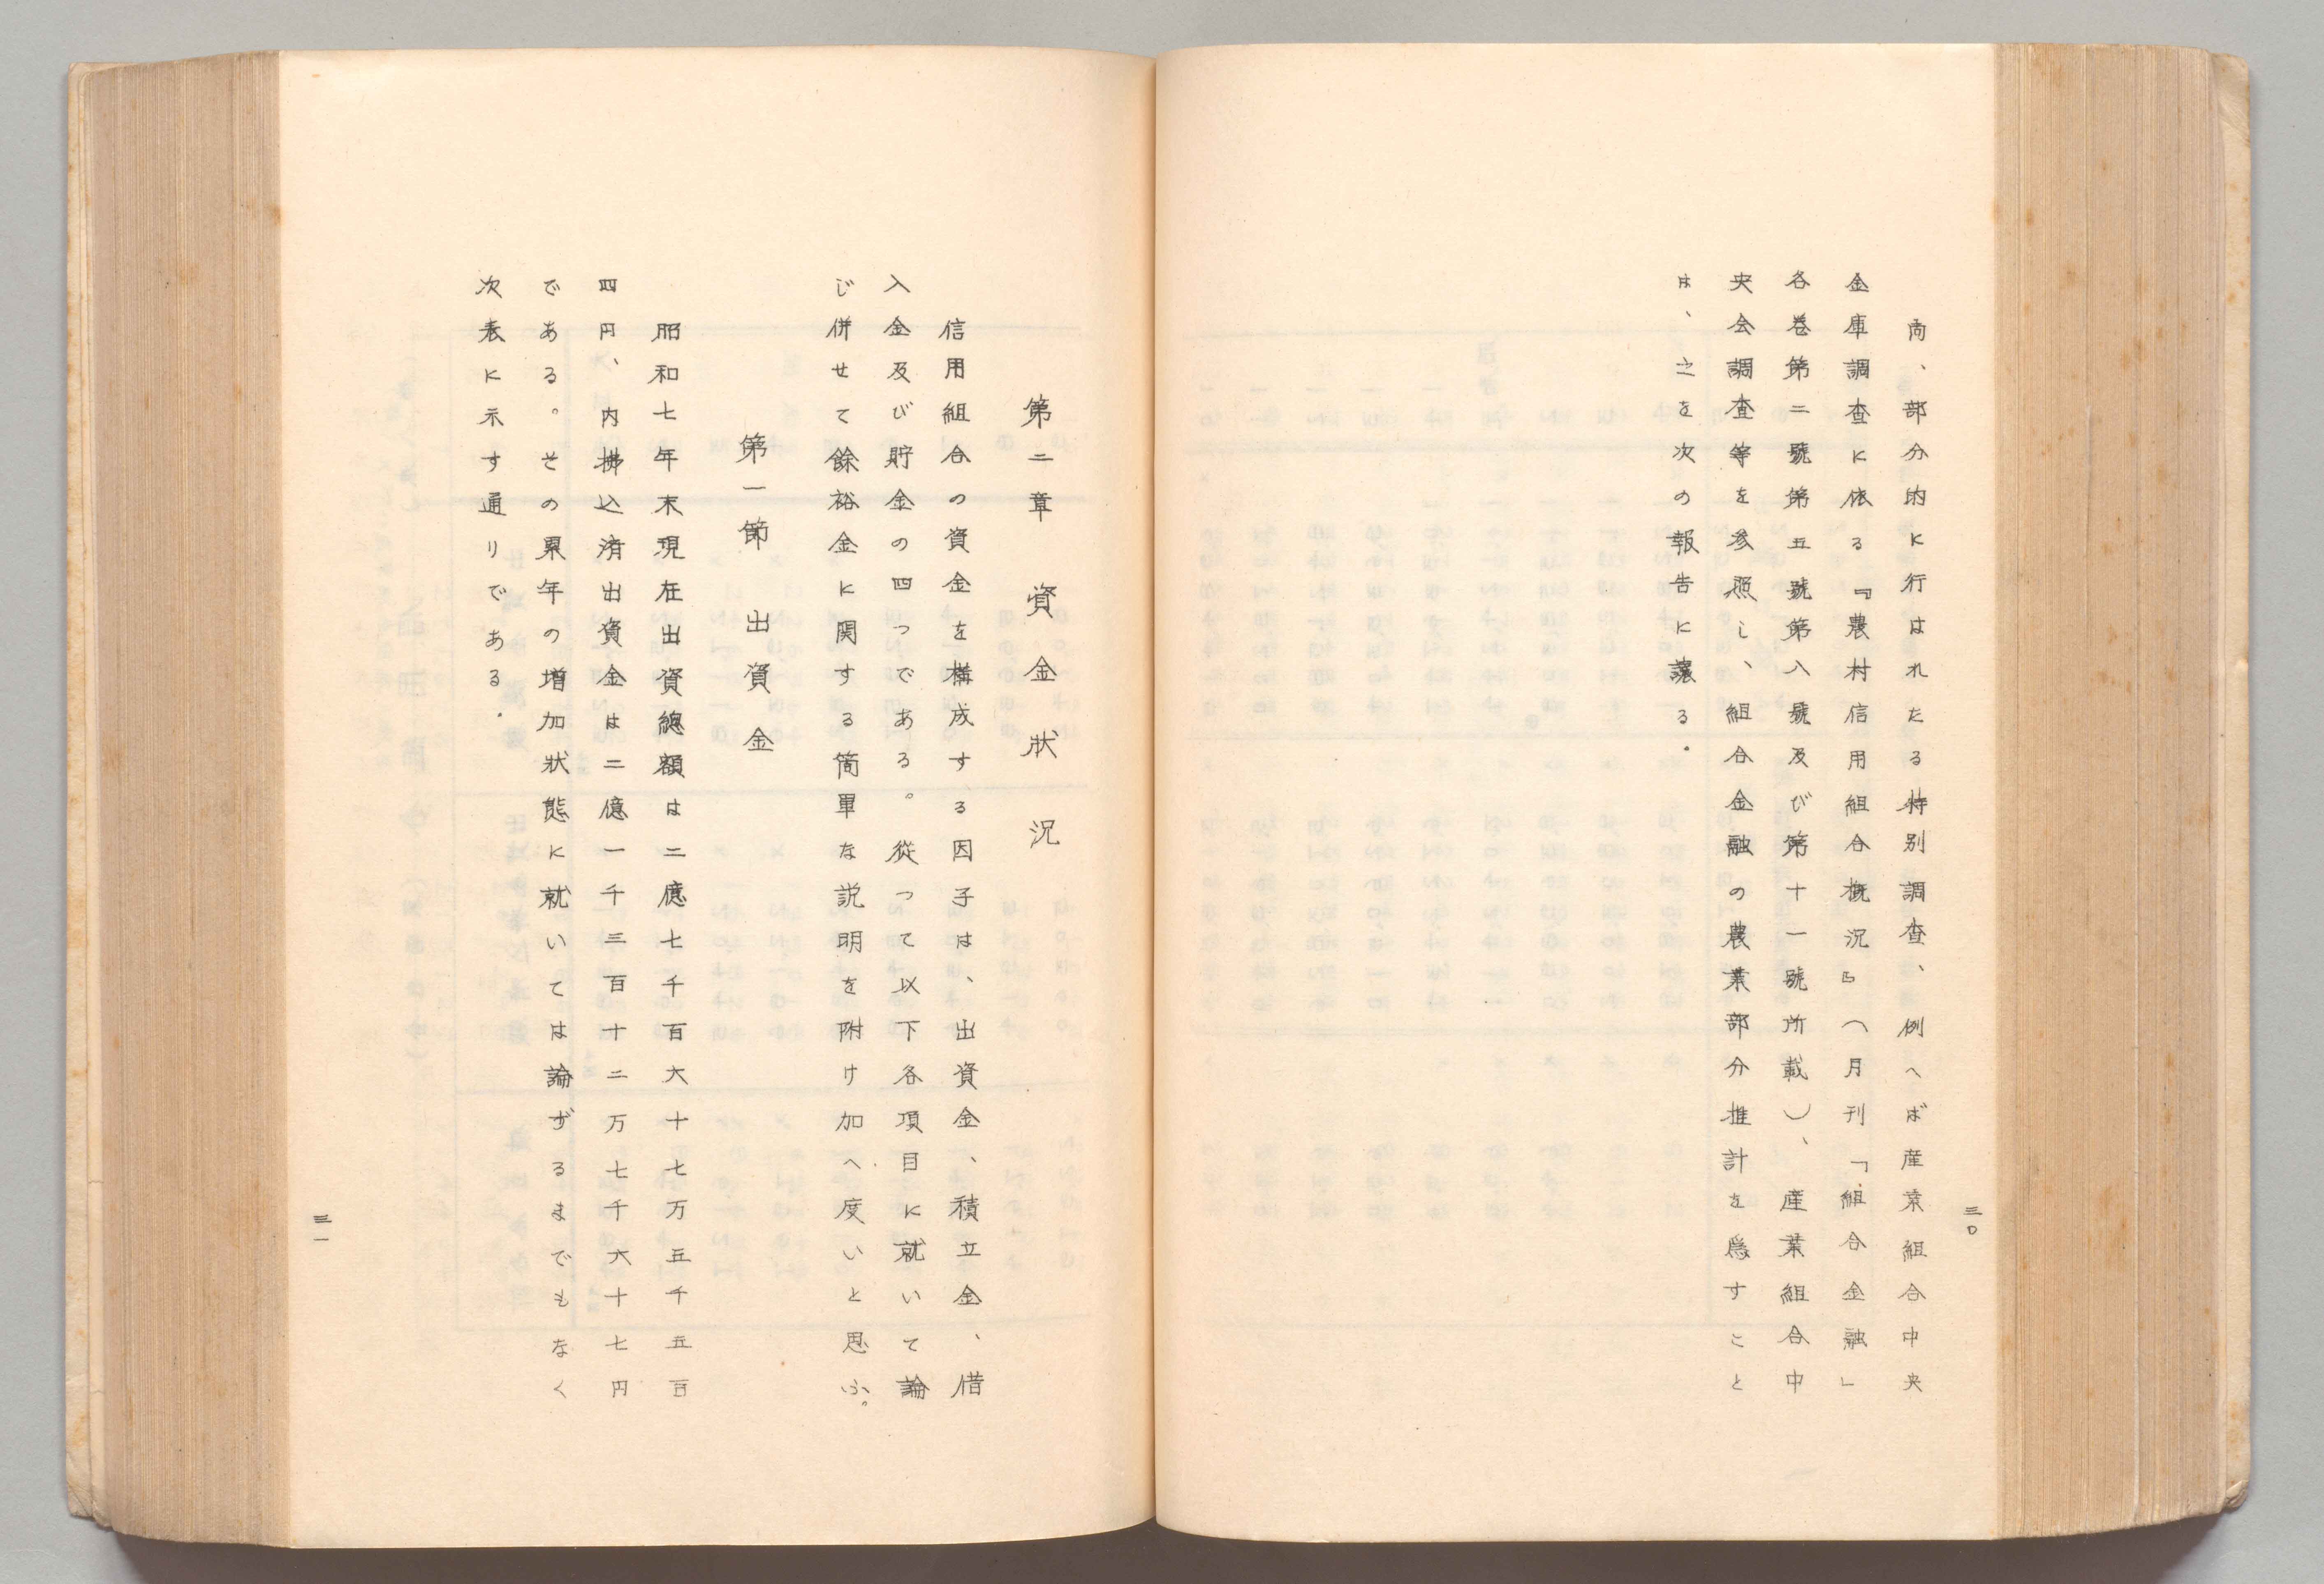 尚、部分的に行はれたる特別調査、例へば産業組合中央
金庫調査に依る『農村信用組合概況』（月刊「組合金融」
各巻第二號第五號第八號及び第十一號所載）、産業組合中
央会調査等を参照し、組合金融の農業部分推計を為すこと
は、之を次の報告に譲る。
三〇
第二章 資金狀況
信用組合の資金を構成する因子は、出資金、積立金、借
入金及び貯金の四つである。従つて以下各項目に就いて論
じ併せて餘裕金に関する簡單な説明を附け加へ度いと思ふ。
第一節 出資金
昭和七年末現在出資總額は二億七千百六十七万五千五百
四円、内拂込済出資金は二億一千三百十二万七千六十七円
である。その累年の増加狀態に就いては論ずるまでもなく
次表に示す通りである。
三一